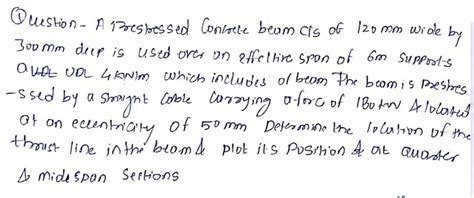 ① Question - A Prestressed Concrete beam C/s of 120 mm wide by
300 mm deep is used over an effective span of 6m supports
a UDL 4 kN/m which includes of beam The beam is Prestres
-ssed by a straight Cable Carrying a force of 180 kN & located
at an eccentricity of 50 mm Determine the location of the
thrust line in the beam & plot its Position & at quarter
& midespan Sections